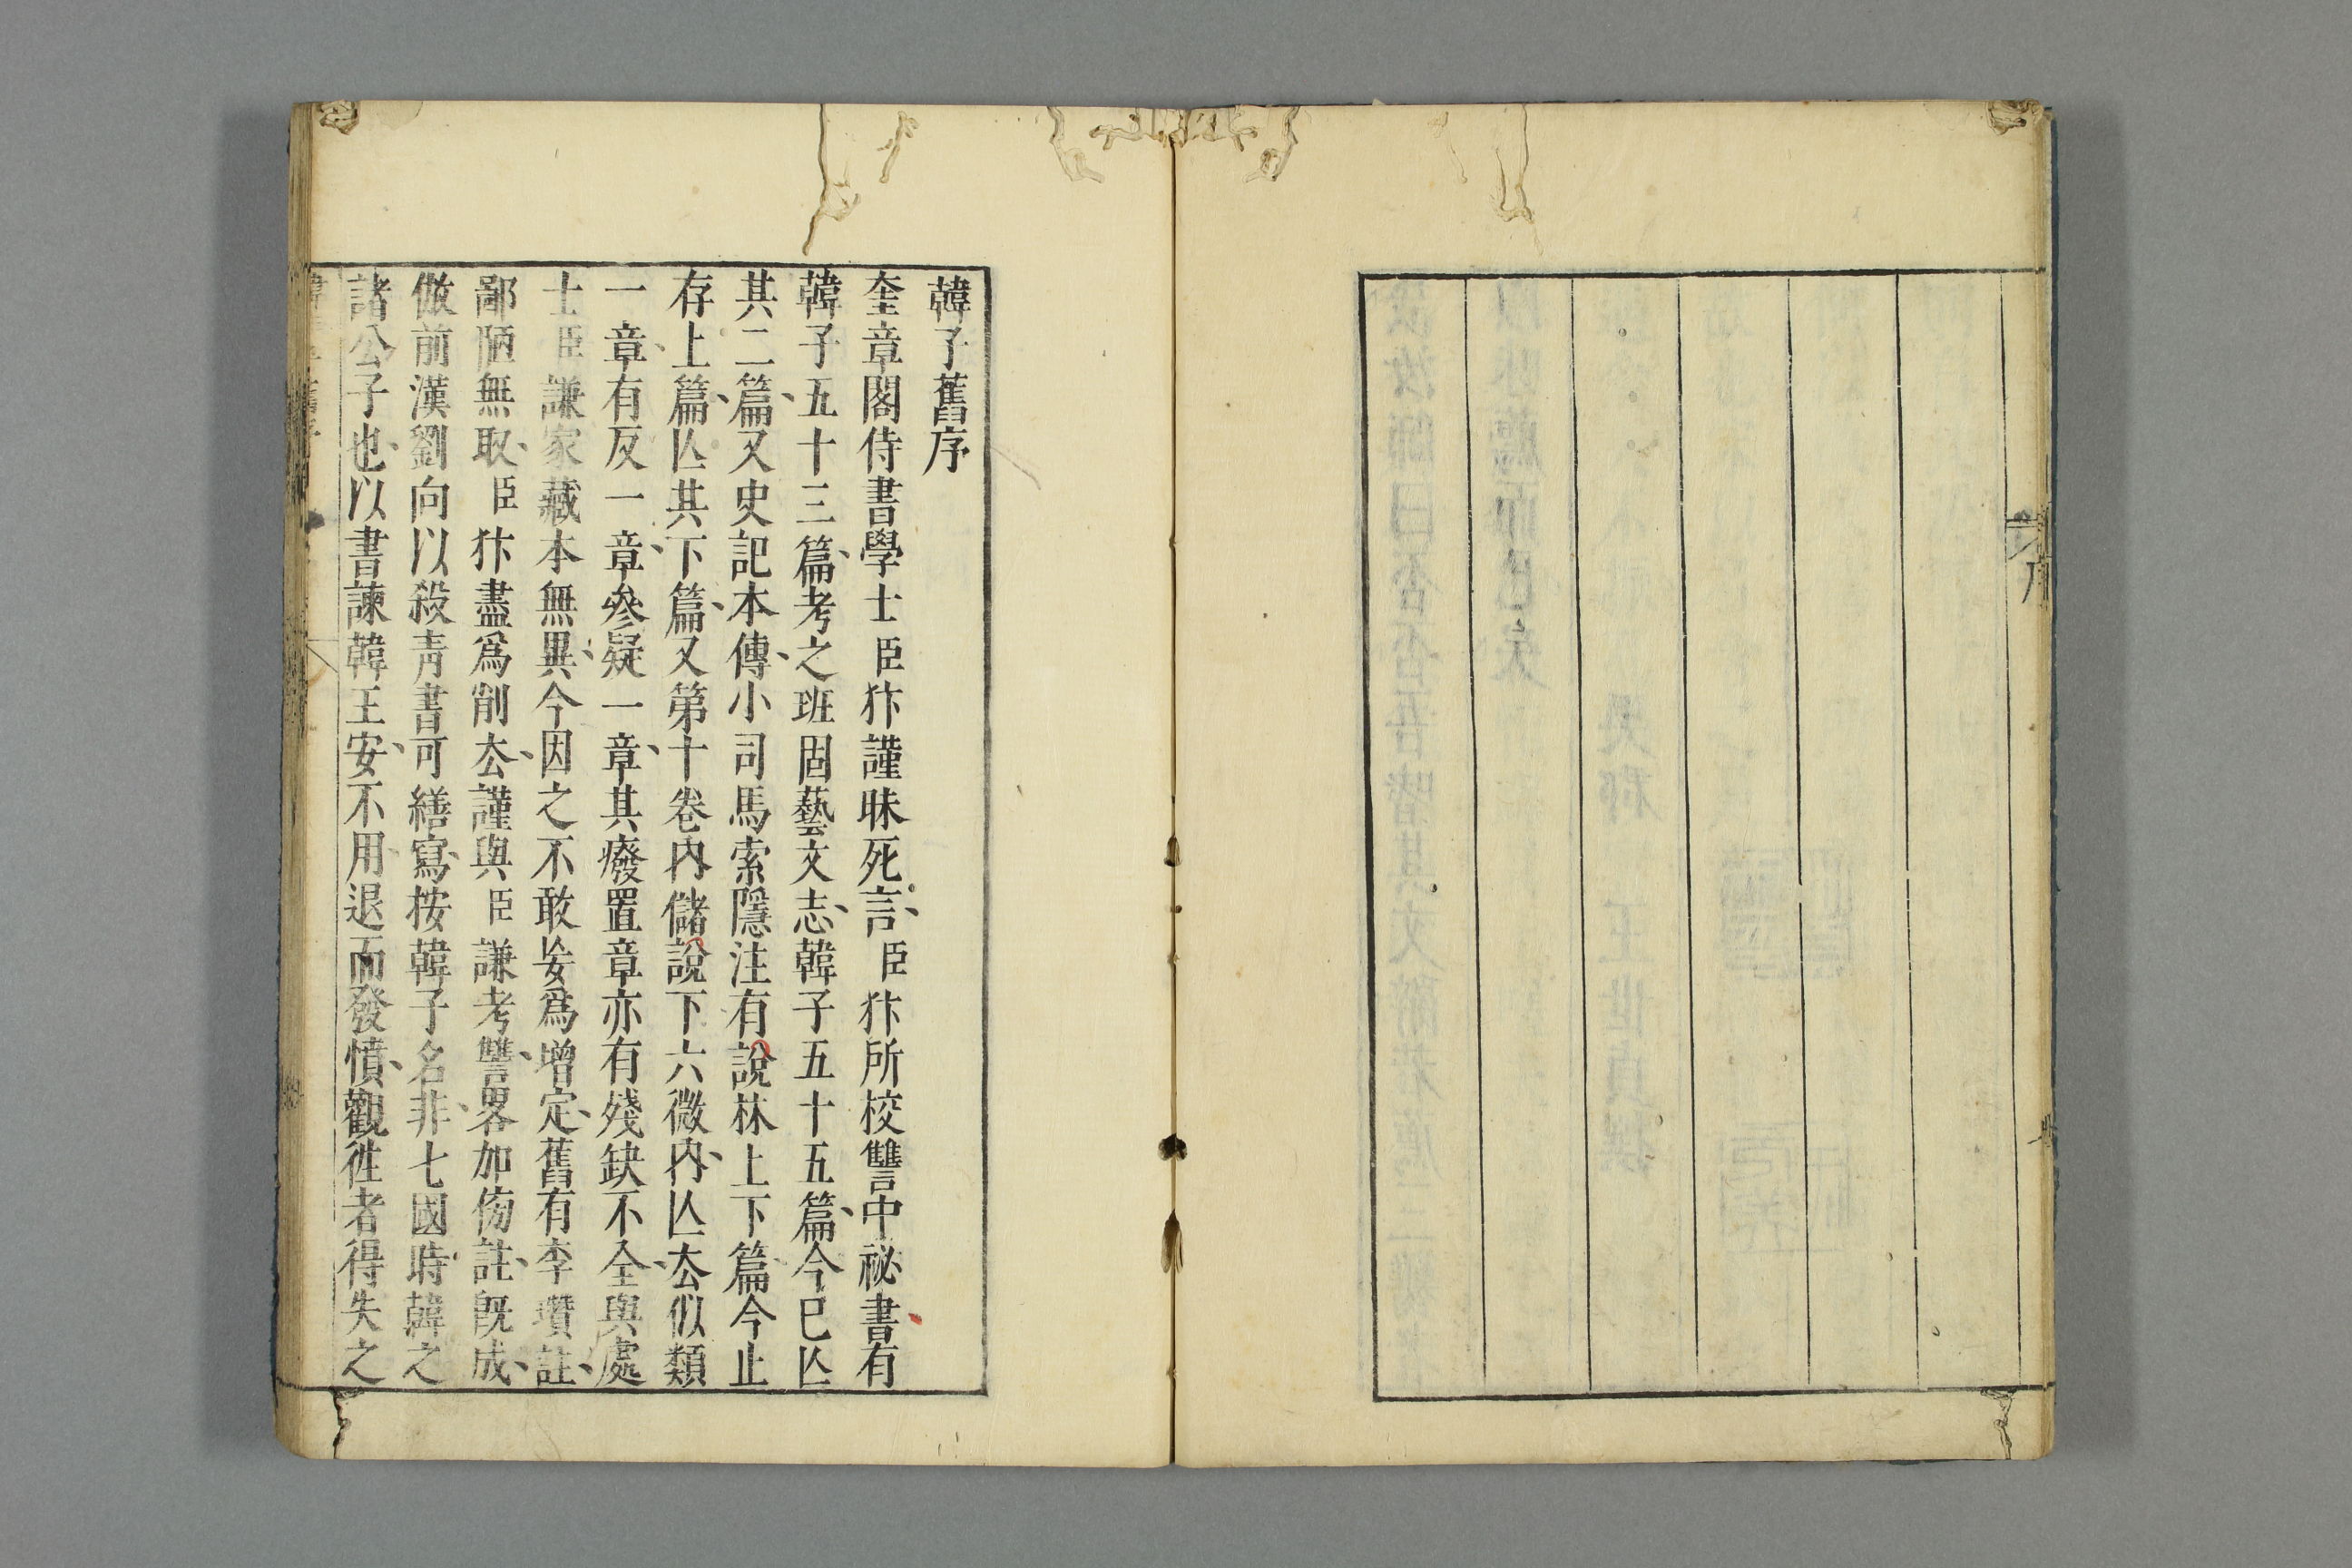 韓子舊序
奎章閣侍書學士臣㹞謹昧死言臣㹞所校讐中祕書有
韓子五十三篇考之班固藝文志韓子五十五篇今已亾
其二篇又史記本傳小司馬索隱注有說林上下篇今止
存上篇亾其下篇又第十卷內儲說下六微內亾厺似類
一章有反一章叅疑一章其廢置章亦有殘缺不全與處
士臣謙家藏本無異今因之不敢妄爲增定舊有李瓚註
鄙陋無取臣㹞盡爲削厺謹與臣謙考讐畧加傍註旣成
倣前漢劉向以殺青書可繕寫按韓子名非七國時韓之
諸公子也以書諫韓王安不用退而發憤觀徃者得失之